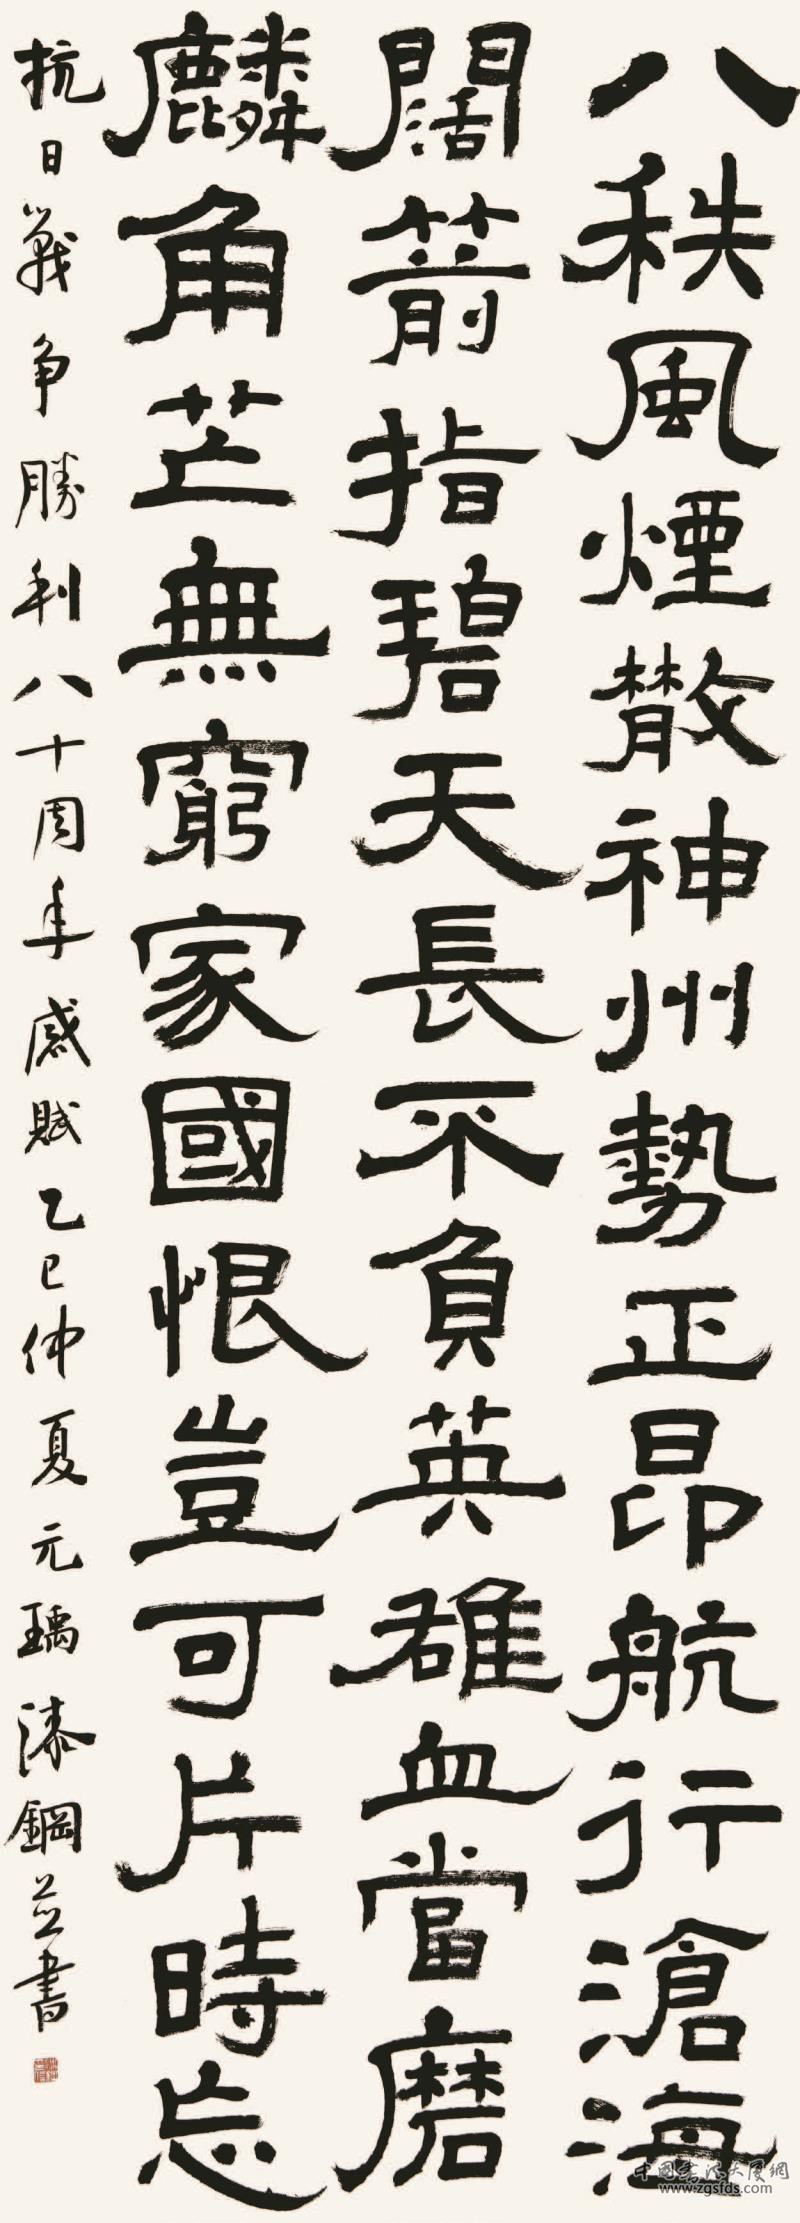 八秩風煙散神州勢正昂航行滄海
闊箭指碧天長不負英雄血當磨
麟角芒無窮家國恨豈可片時忘
抗日戰爭勝利八十周年感賦乙巳仲夏元瑀漆鋼並書
中國書法大廈網
www.zgsfds.com